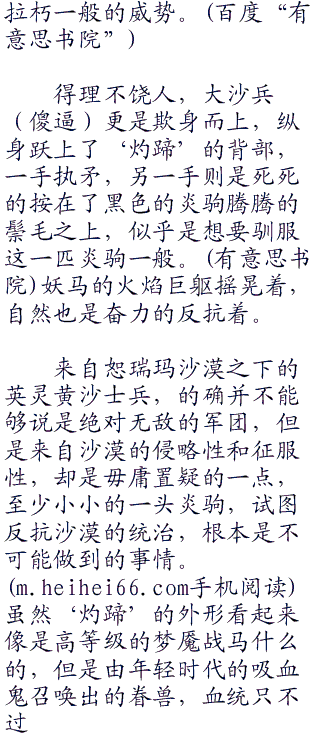 拉朽一般的威势。(百度“有
意思书院”)
得理不饶人，大沙兵
（傻逼）更是欺身而上，纵
身跃上了‘灼蹄’的背部，
一手执矛，另一手则是死死
的按在了黑色的炎驹腾腾的
鬃毛之上，似乎是想要驯服
这一匹炎驹一般。(有意思书
院)妖马的火焰巨躯摇晃着，
自然也是奋力的反抗着。
来自恕瑞玛沙漠之下的
英灵黄沙士兵，的确并不能
够说是绝对无敌的军团，但
是来自沙漠的侵略性和征服
性，却是毋庸置疑的一点，
至少小小的一头炎驹，试图
反抗沙漠的统治，根本是不
可能做到的事情。
(m.heihei66.com手机阅读)
虽然‘灼蹄’的外形看起来
像是高等级的梦魇战马什么
的，但是由年轻时代的吸血
鬼召唤出的眷兽，血统只不
过